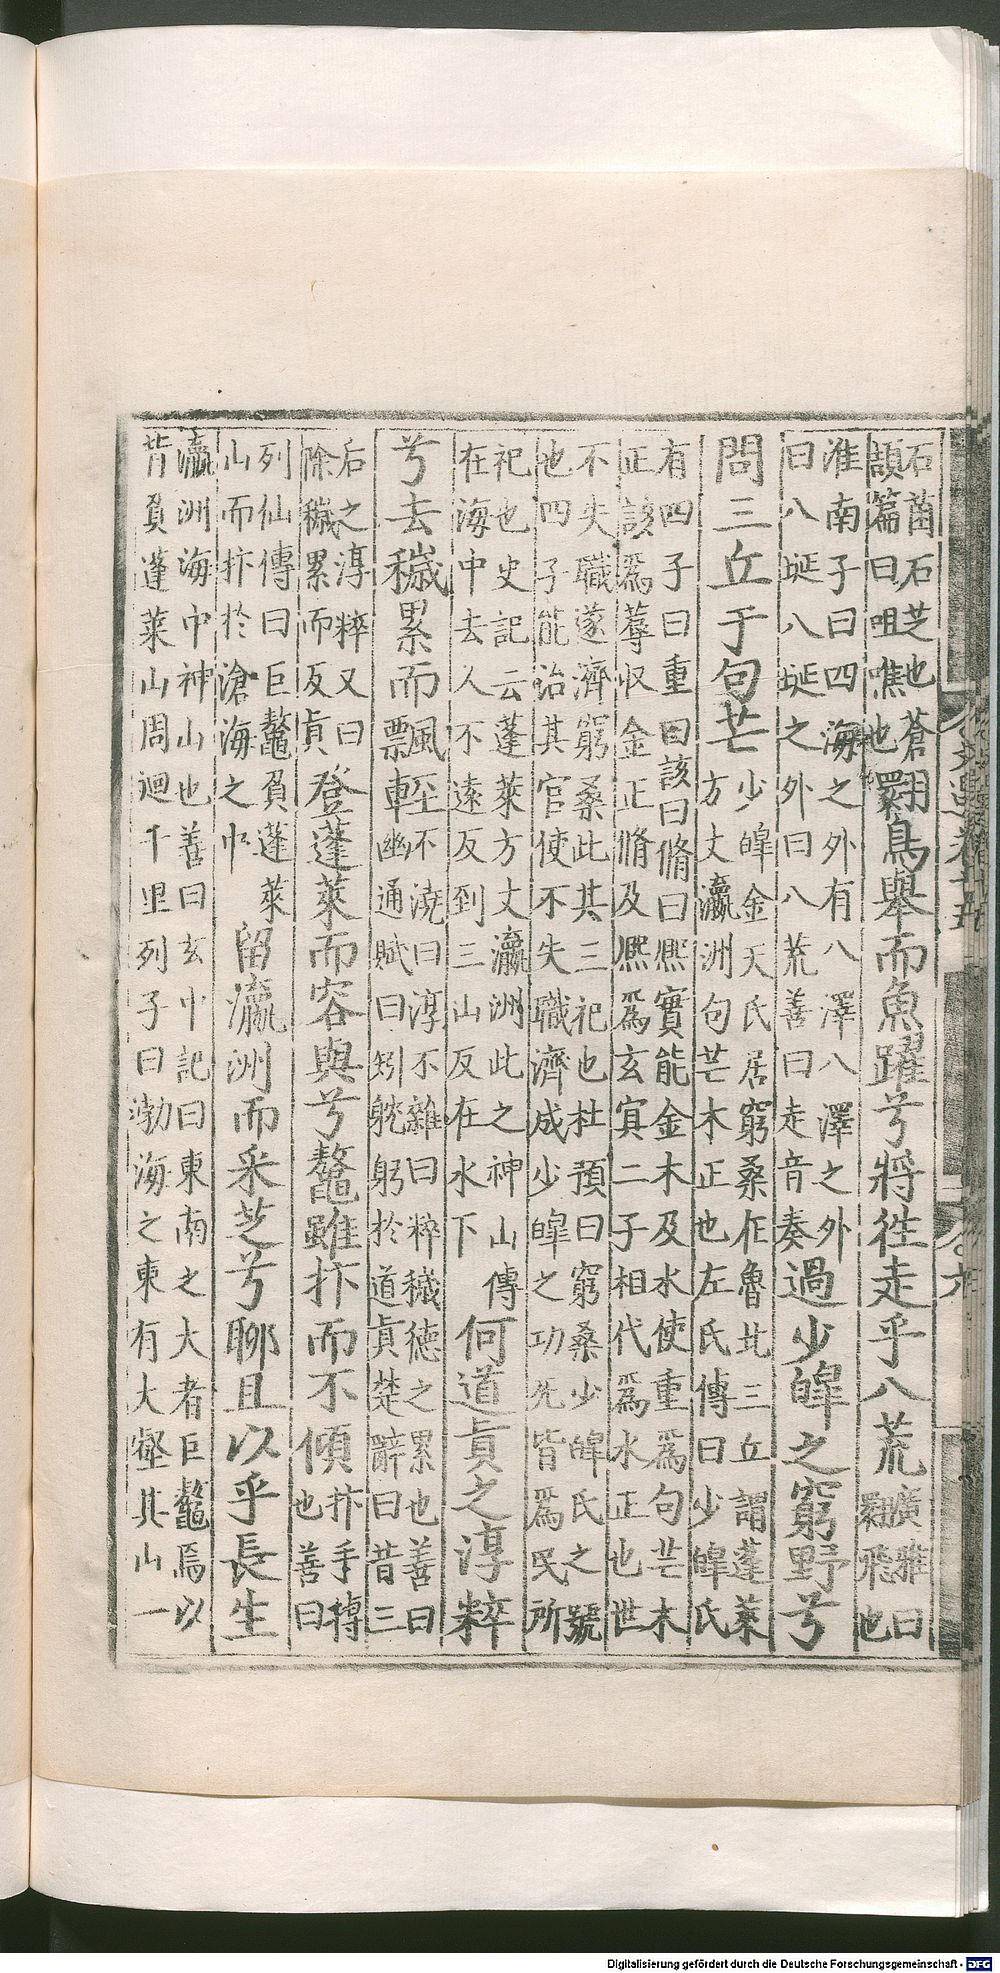 石菌石芝也蒼頡篇曰咀噍也翾鳥舉而魚躍兮將往走乎八荒廣雅曰翾飛也
淮南子曰四海之外有八澤八澤之外曰八埏八埏之外曰八荒善曰走音奏過少皥之窮野兮
問三丘于句芒少皥金天氏居窮桑在魯北三丘謂蓬萊方丈瀛洲句芒木正也左氏傳曰少皥氏
有四子曰重曰該曰脩曰熈實能金木及水使重爲句芒木正該爲蓐収金正脩及熈爲玄冥二子相代爲水正也世
不失職遂濟窮桑此其三祀也杜預曰窮桑少皥氏之號也四子能治其官使不失職濟成少皥之功死皆爲民所
祀也史記云蓬萊方丈瀛洲此之神山傳在海中去人不遠及到三山反在水下何道貞之淳粹
兮去穢累而飄輕不澆曰淳不雜曰粹穢德之累也善曰幽通賦曰矧躭躬於道貞楚辭曰昔三
后之淳粹又曰除穢累而反貞登蓬萊而容與兮鼇雖抃而不傾抃手搏也善曰
列仙傳曰巨鼇負蓬萊山而抃於滄海之中留瀛洲而采芝兮聊且以乎長生
瀛洲海中神山也善曰玄中記曰東南之大者巨鼇焉以背負蓬萊山周迴千里列子曰渤海之東有大壑其山一
Digitalisierung gefördert durch die Deutsche Forschungsgemeinschaft - DFG